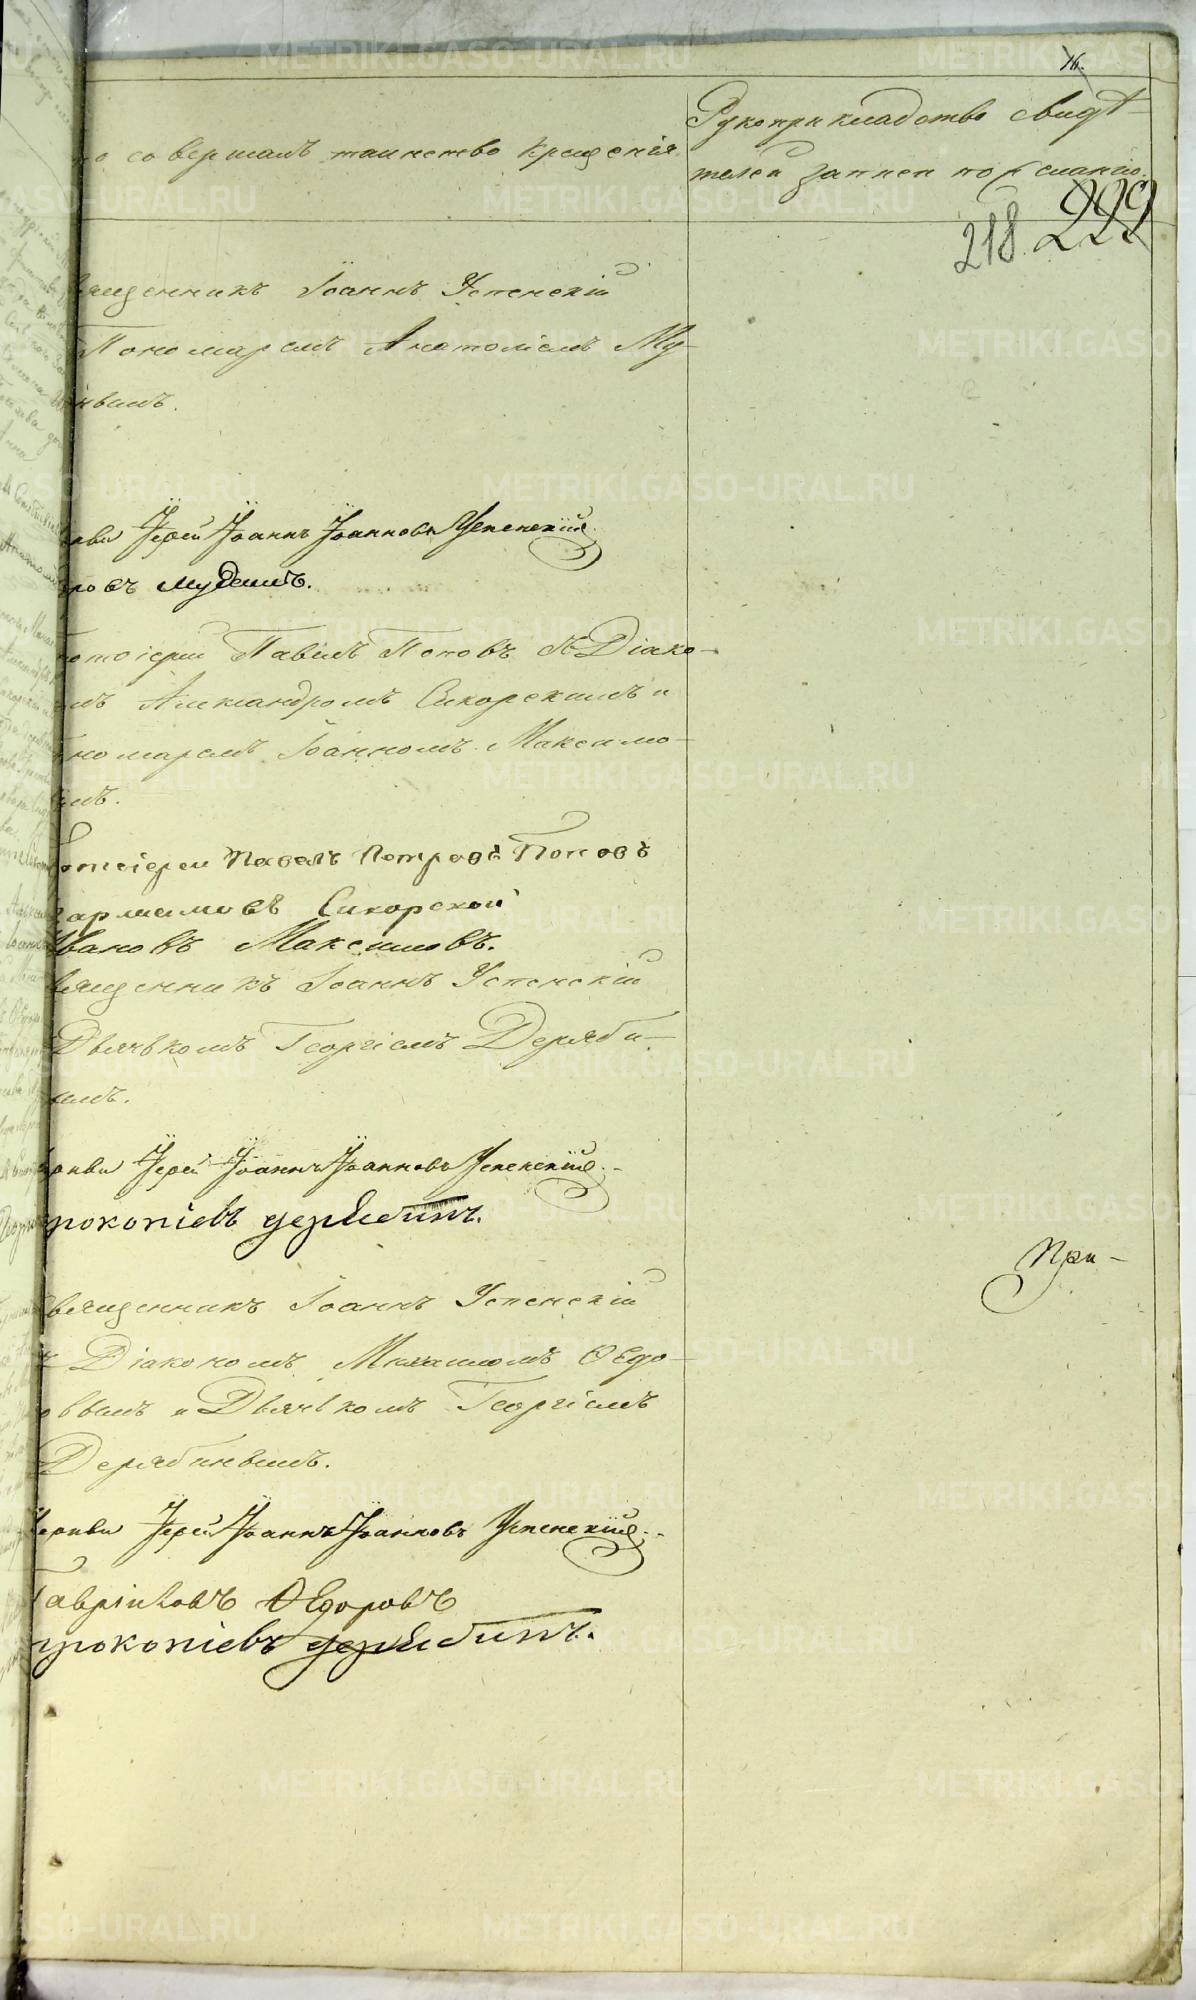 76.
то совершалъ таинство крещенія.
Рукоприкладство свидѣ-
телей записи по желанію.
218. 222
священникъ Іоаннъ Успенскій
Пономаремъ Анатоліемъ Му-
Іерей Іоаннъ Іоанновъ Успенскій
Протоіерей Павелъ Поповъ съ Діако-
Александромъ Сикорскимъ и
номаремъ Іоанномъ Максимо-
вымъ.
отоіерей Павелъ Петровъ Поповъ
Сикорской
Ивановъ Максимовъ.
вященникъ Іоаннъ Успенскій
Дьячькомъ Георгіемъ Деряби-
нымъ.
Церкви Іерей Іоаннъ Іоанновъ Успенскій
Прокопіевъ Дерябинъ.
При-
Священникъ Іоаннъ Успенскій
съ Діакономъ Михаиломъ Ѳедо-
ровымъ и Дьячькомъ Георгіемъ
Дерябинымъ.
Церкви Іерей Іоаннъ Іоанновъ Успенскій
Гавріиловъ Ѳедоровъ
Прокопіевъ Дерябинъ.
METRIKI.GASO-URAL.RU